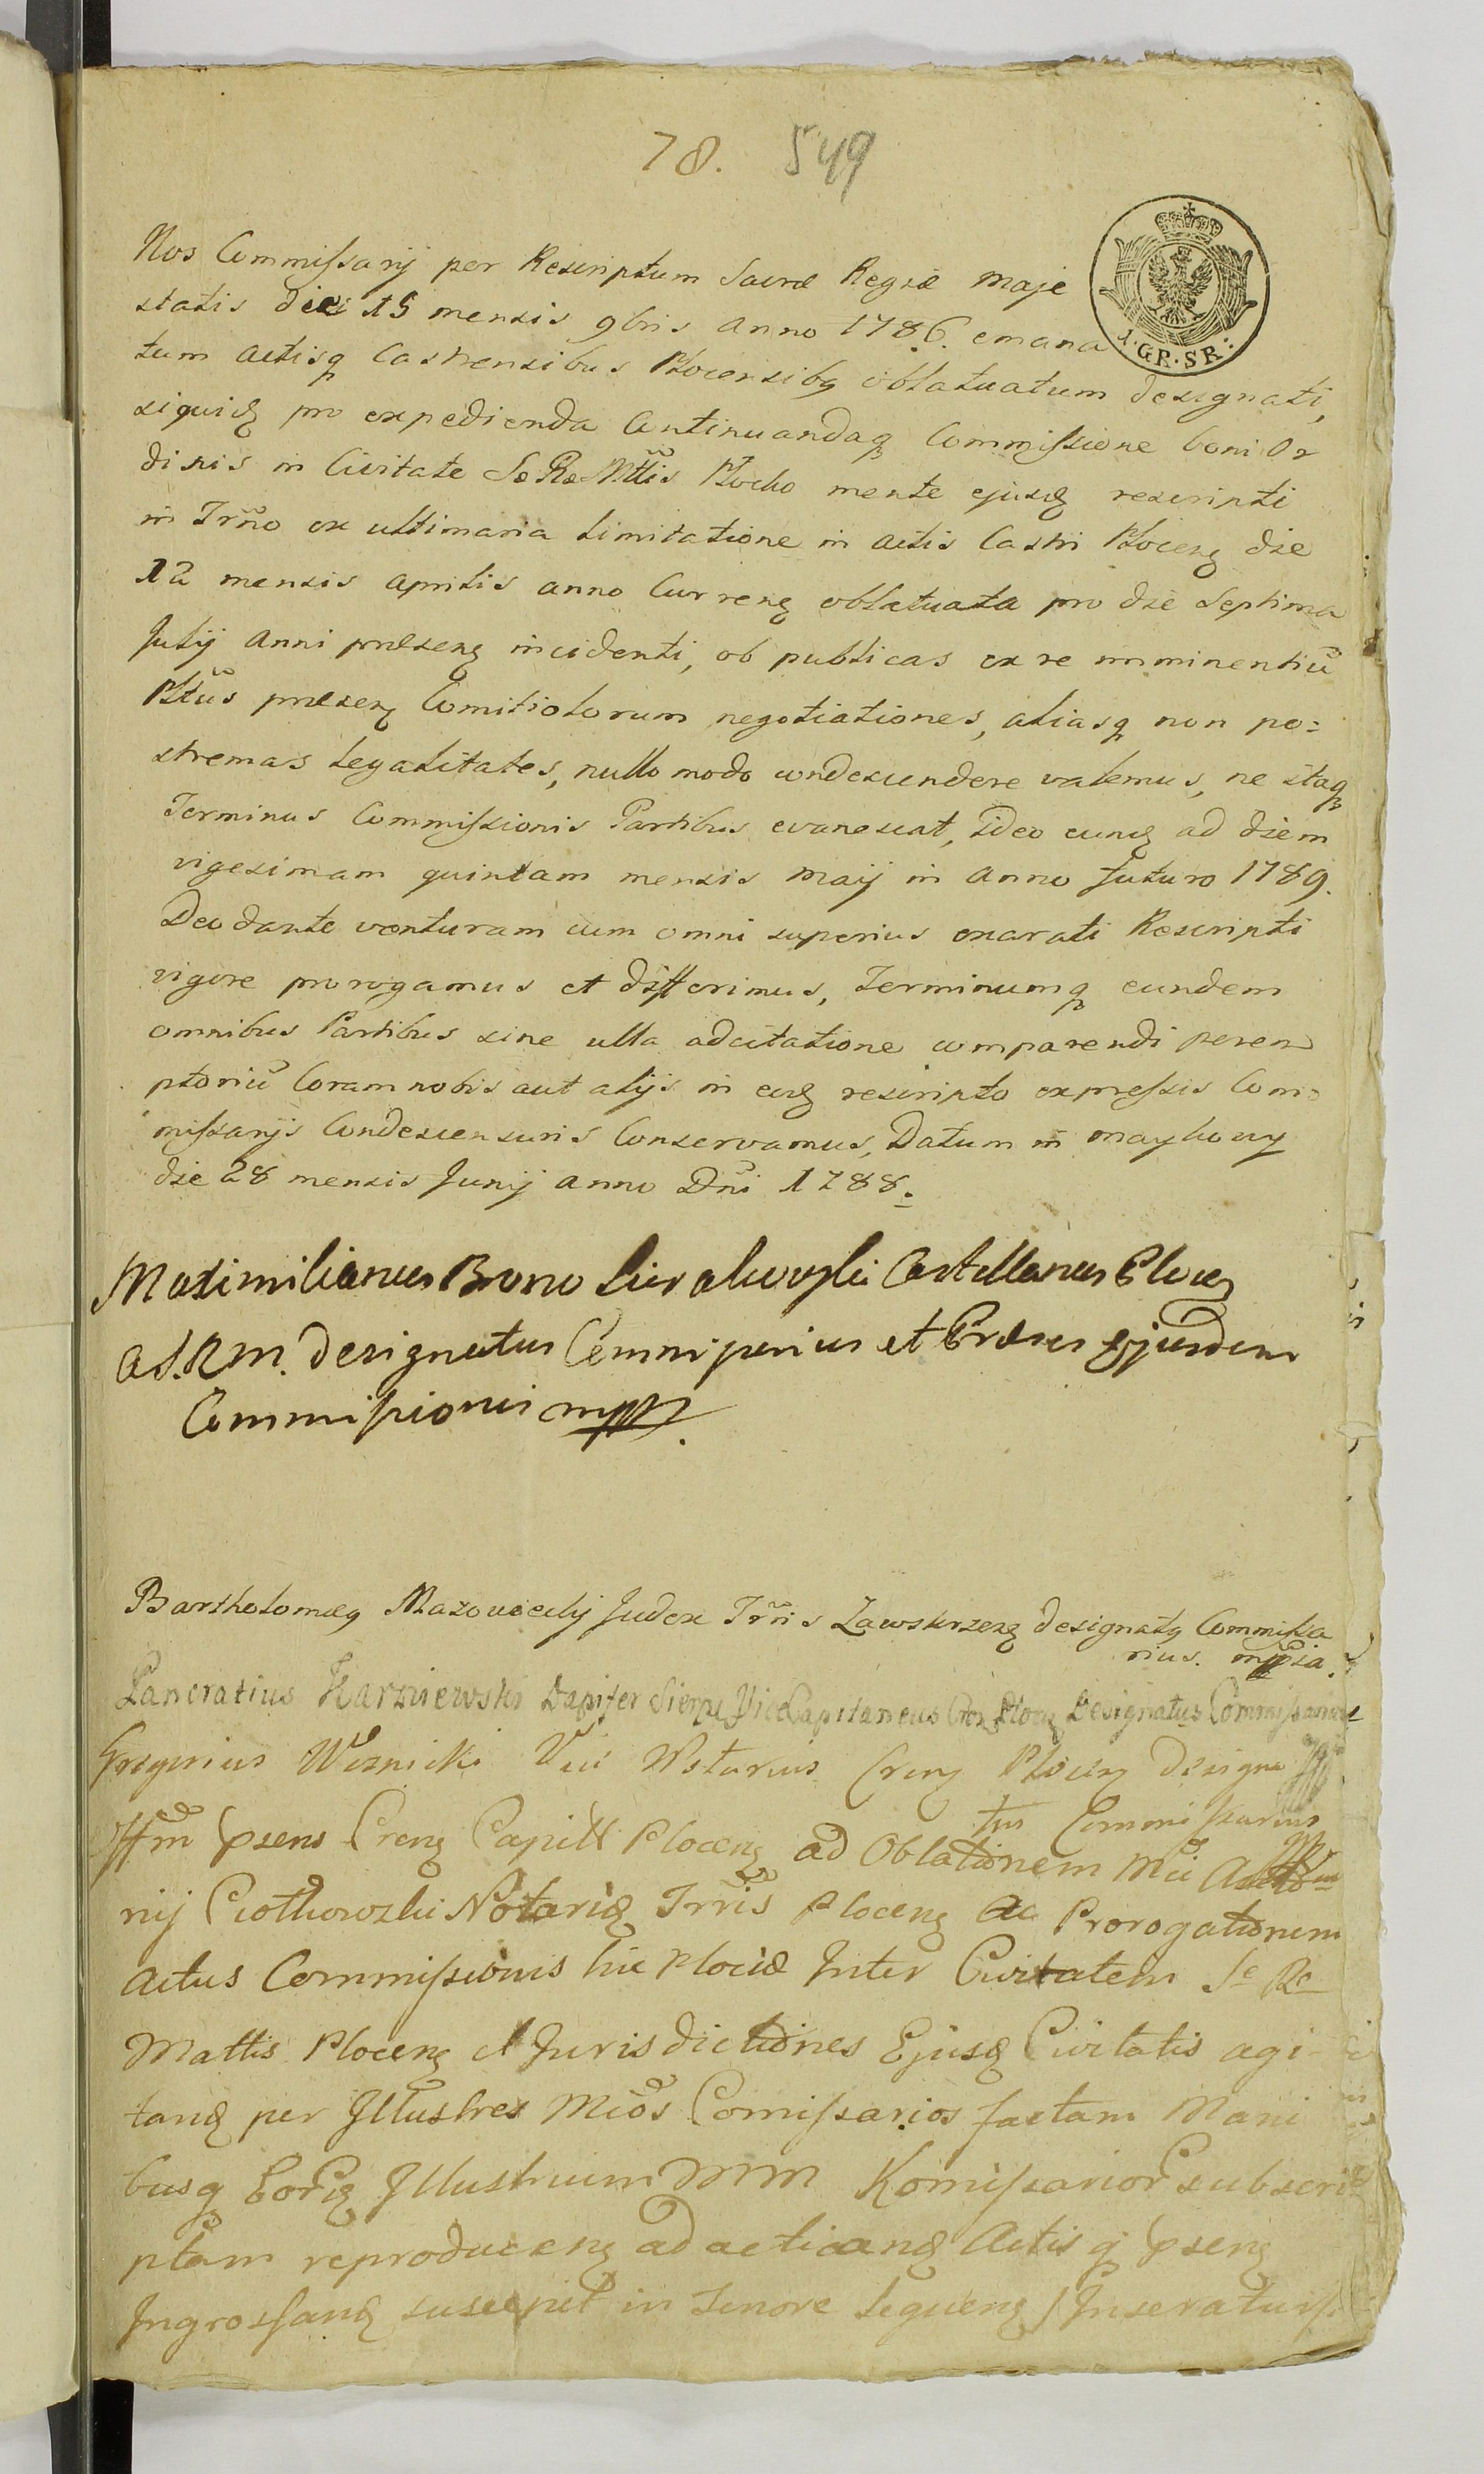 78. 549
Nos Commissarij per Rescriptum Sacræ Regiæ Maje
statis die 15 mensis 9bris anno 1786. emana
1. GR. SR:
tum actisq Castrensibus Plocensibq oblatuatum designati,
siquid pro expedienda Continuandaq Commissione boni Or
dinis in Civitate Sæ Ræ Mttis Plocko mente ejusd rescripti
in Trño ex ultimaria limitatione in actis Castri Plocens die
12 mensis Aprilis anno Currens oblatuata pro die Septima
Julij Anni præsens incidenti, ob publicas ex re imminentiũ
præsens Comitiolorum negotiationes, aliasq non po=
stremas legalitates, nullo modo condescendere valemus, ne itaq
Terminus Commissionis Partibus evanescat, Ideo eund ad diem
vigesimam quintam mensis Maij in Anno futuro 1789.
Deo dante venturam cum omni superius exarati Rescripti
vigore prorogamus et differimus, Terminumq eundem
omnibus Partibus sine ulla adcitatione comparendi perem
ptoriũ Coram nobis aut alijs in eod rescripto expressis Com=
missarijs Condescensuris Conservamus, Datum in
die 28 mensis Junij anno Dñi 1788.
Maximilianus Bono Castellanus Plocen
a S. R. M. designatus Commissarius et Præses Ejusdem
Commissionis mpp
Bartholomæq Mazowiecky Judex Trñis Zawskrzens designatq Commissa
rius. mppia.
Pancratius Karniewski Dapifer Vice Capitaneus Plocen Designatus Commissarius
Gregorius Vice Notarius Crens Plocens designa
tus Commissarius
Offm psens Crens Capitt Plocens ad Oblationem Mci Anto
nij Piotkowski Notarij Trris Plocens ac Prorogationem
actus Commissionis hic Plociæ Inter Civitatem Sæ Ræ
Mattis Plocens et Jurisdictiones Ejusd Civitatis agi
tand per Illustres Mcos Comissarios factam Mani
busq Eord Illustrium MM Komissarior subscri
ptam reproducens ad acticand Actisq psens
Ingrossand suscepit in Tenore Sequens /Inseratur/.